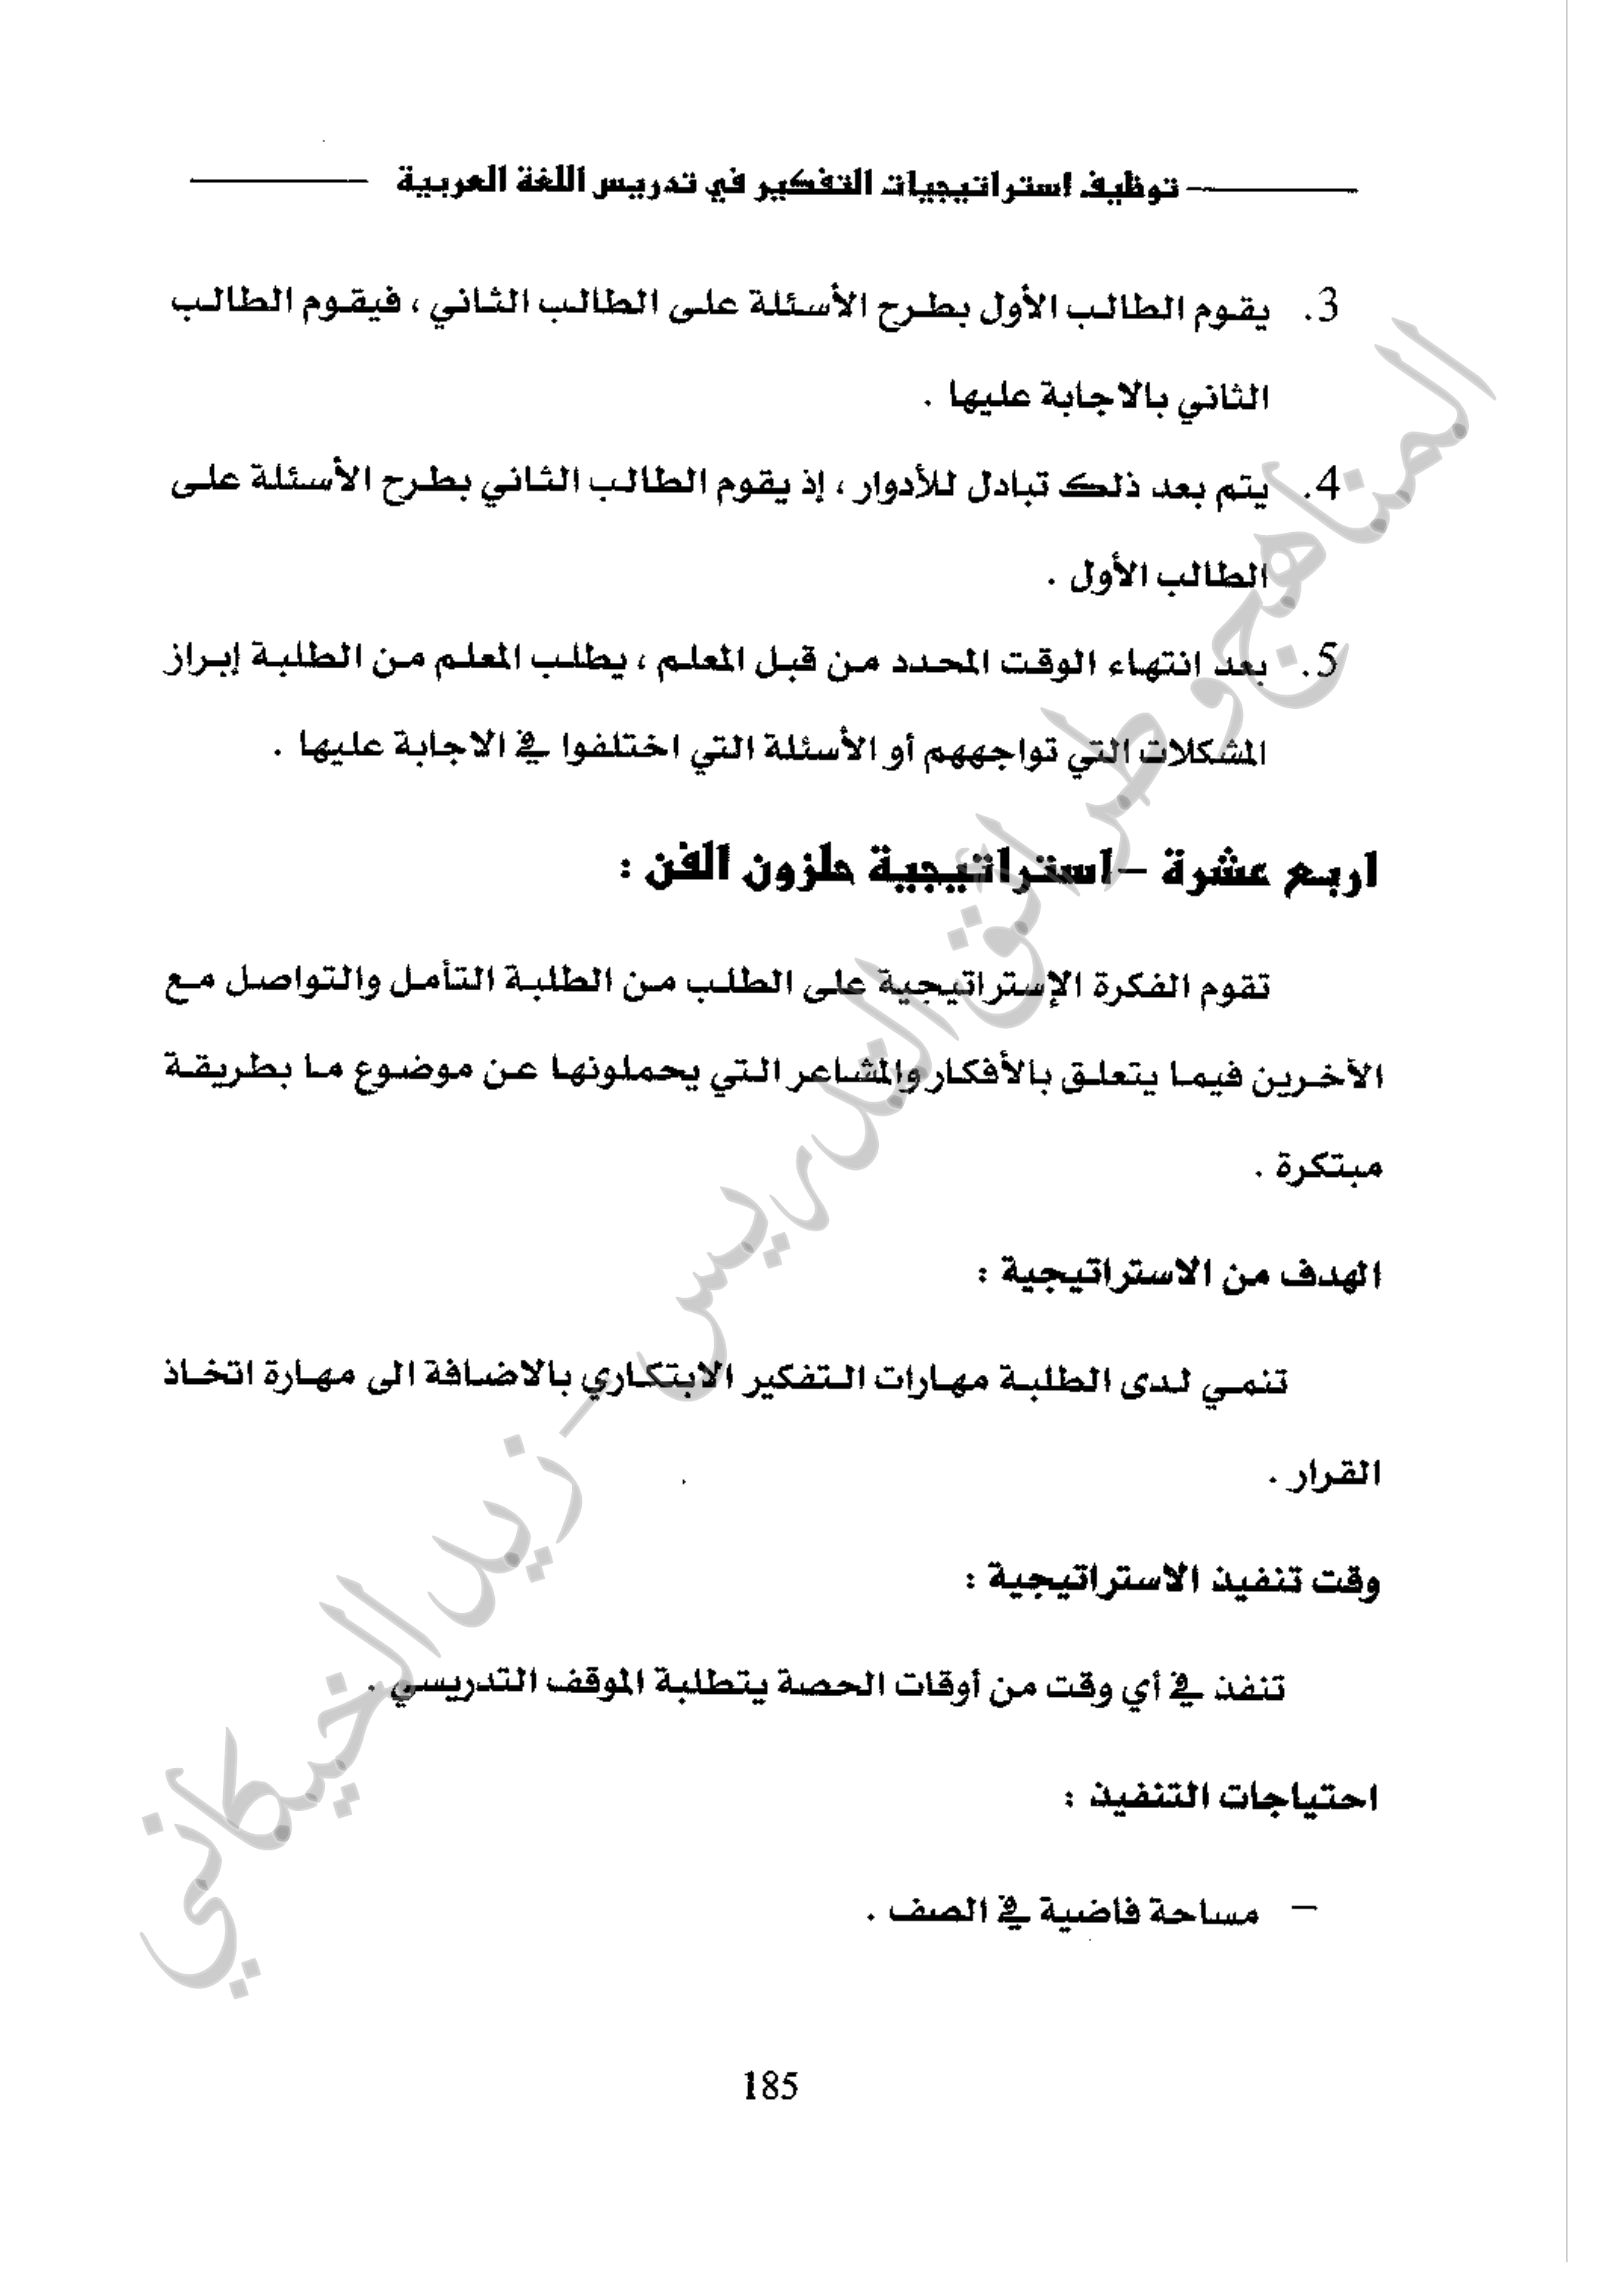 توظيف استراتيجيات التفكير في تدريس اللغة العربية
3. يقوم الطالب الأول بطرح الأسئلة على الطالب الثاني ، فيقوم الطالب
الثاني بالاجابة عليها .
4. يتم بعد ذلك تبادل للأدوار ، إذ يقوم الطالب الثاني بطرح الأسئلة على
الطالب الأول .
5. بعد انتهاء الوقت المحدد من قبل المعلم ، يطلب المعلم من الطلبة إبراز
المشكلات التي تواجههم أو الأسئلة التي اختلفوا في الاجابة عليها .
اربع عشرة – استراتيجية حلزون الفن :
تقوم الفكرة الإستراتيجية على الطلب من الطلبة التأمل والتواصل مع
الآخرين فيما يتعلق بالأفكار والمشاعر التي يحملونها عن موضوع ما بطريقة
مبتكرة .
الهدف من الاستراتيجية :
تنمي لدى الطلبة مهارات التفكير الابتكاري بالاضافة الى مهارة اتخاذ
القرار .
وقت تنفيذ الاستراتيجية :
تنفذ في أي وقت من أوقات الحصة يتطلبة الموقف التدريسي .
احتياجات التنفيذ :
– مساحة فاضية في الصف .
185
المناهج وطرائق التدريس - زيد الخيكاني